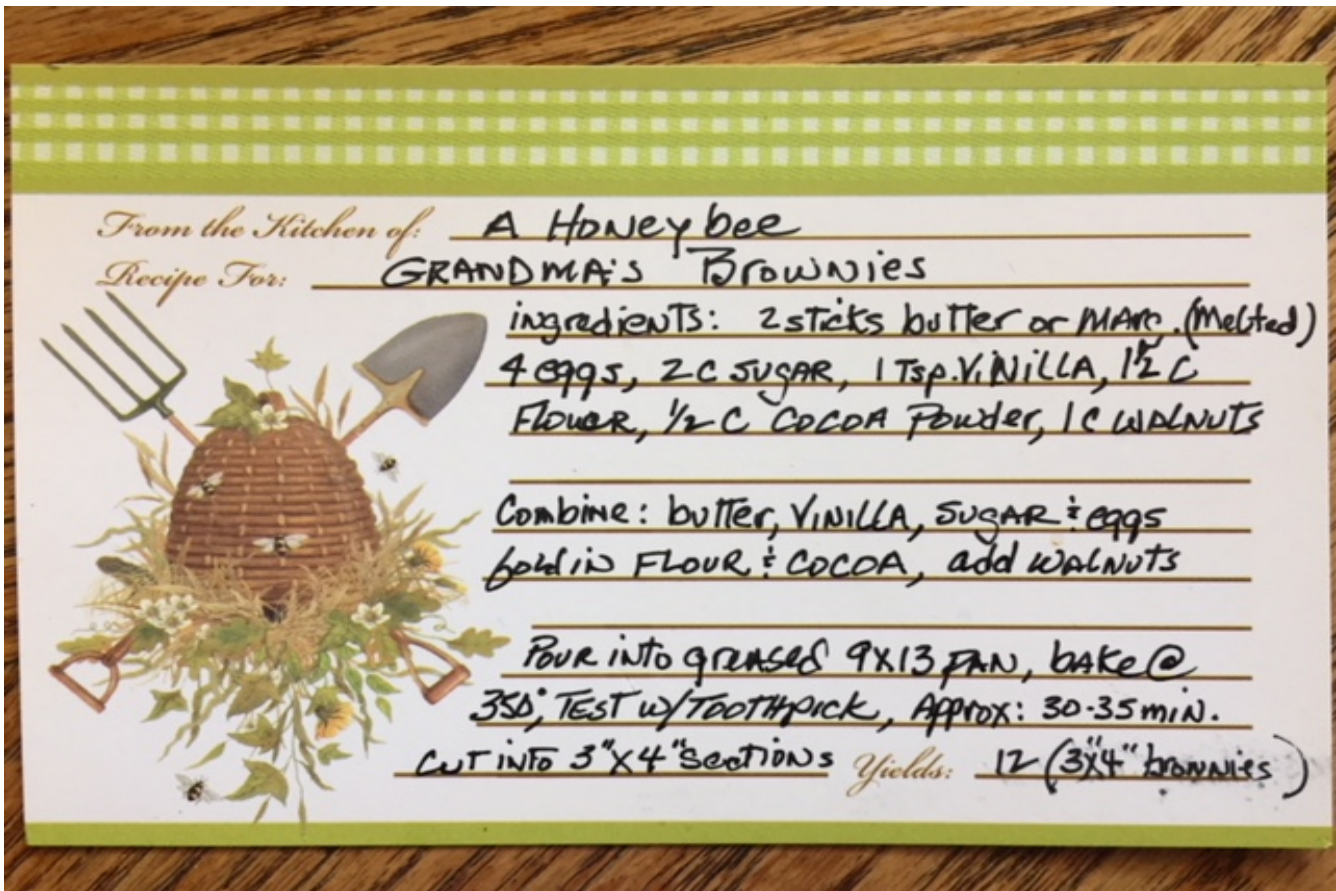 From the Kitchen of: A Honey bee
Recipe For: GRANDMA'S Brownies
ingredients: 2 sticks butter or MARG. (Melted)
4 eggs, 2 C SUGAR, 1 Tsp. ViNiLLA, 1 1/2 C
FLOUER, 1/2 C COCOA Powder, 1 C WALNUTS
Combine: butter, VINILLA, SUGAR & eggs
fold in FLOUR & COCOA, add WALNUTS
POUR into greased 9X13 PAN, bake @
350°, TEST w/ TOOTHpick, Approx: 30-35 min.
CUT INTO 3"X4" sections Yields: 12 (3"x4" brownies)